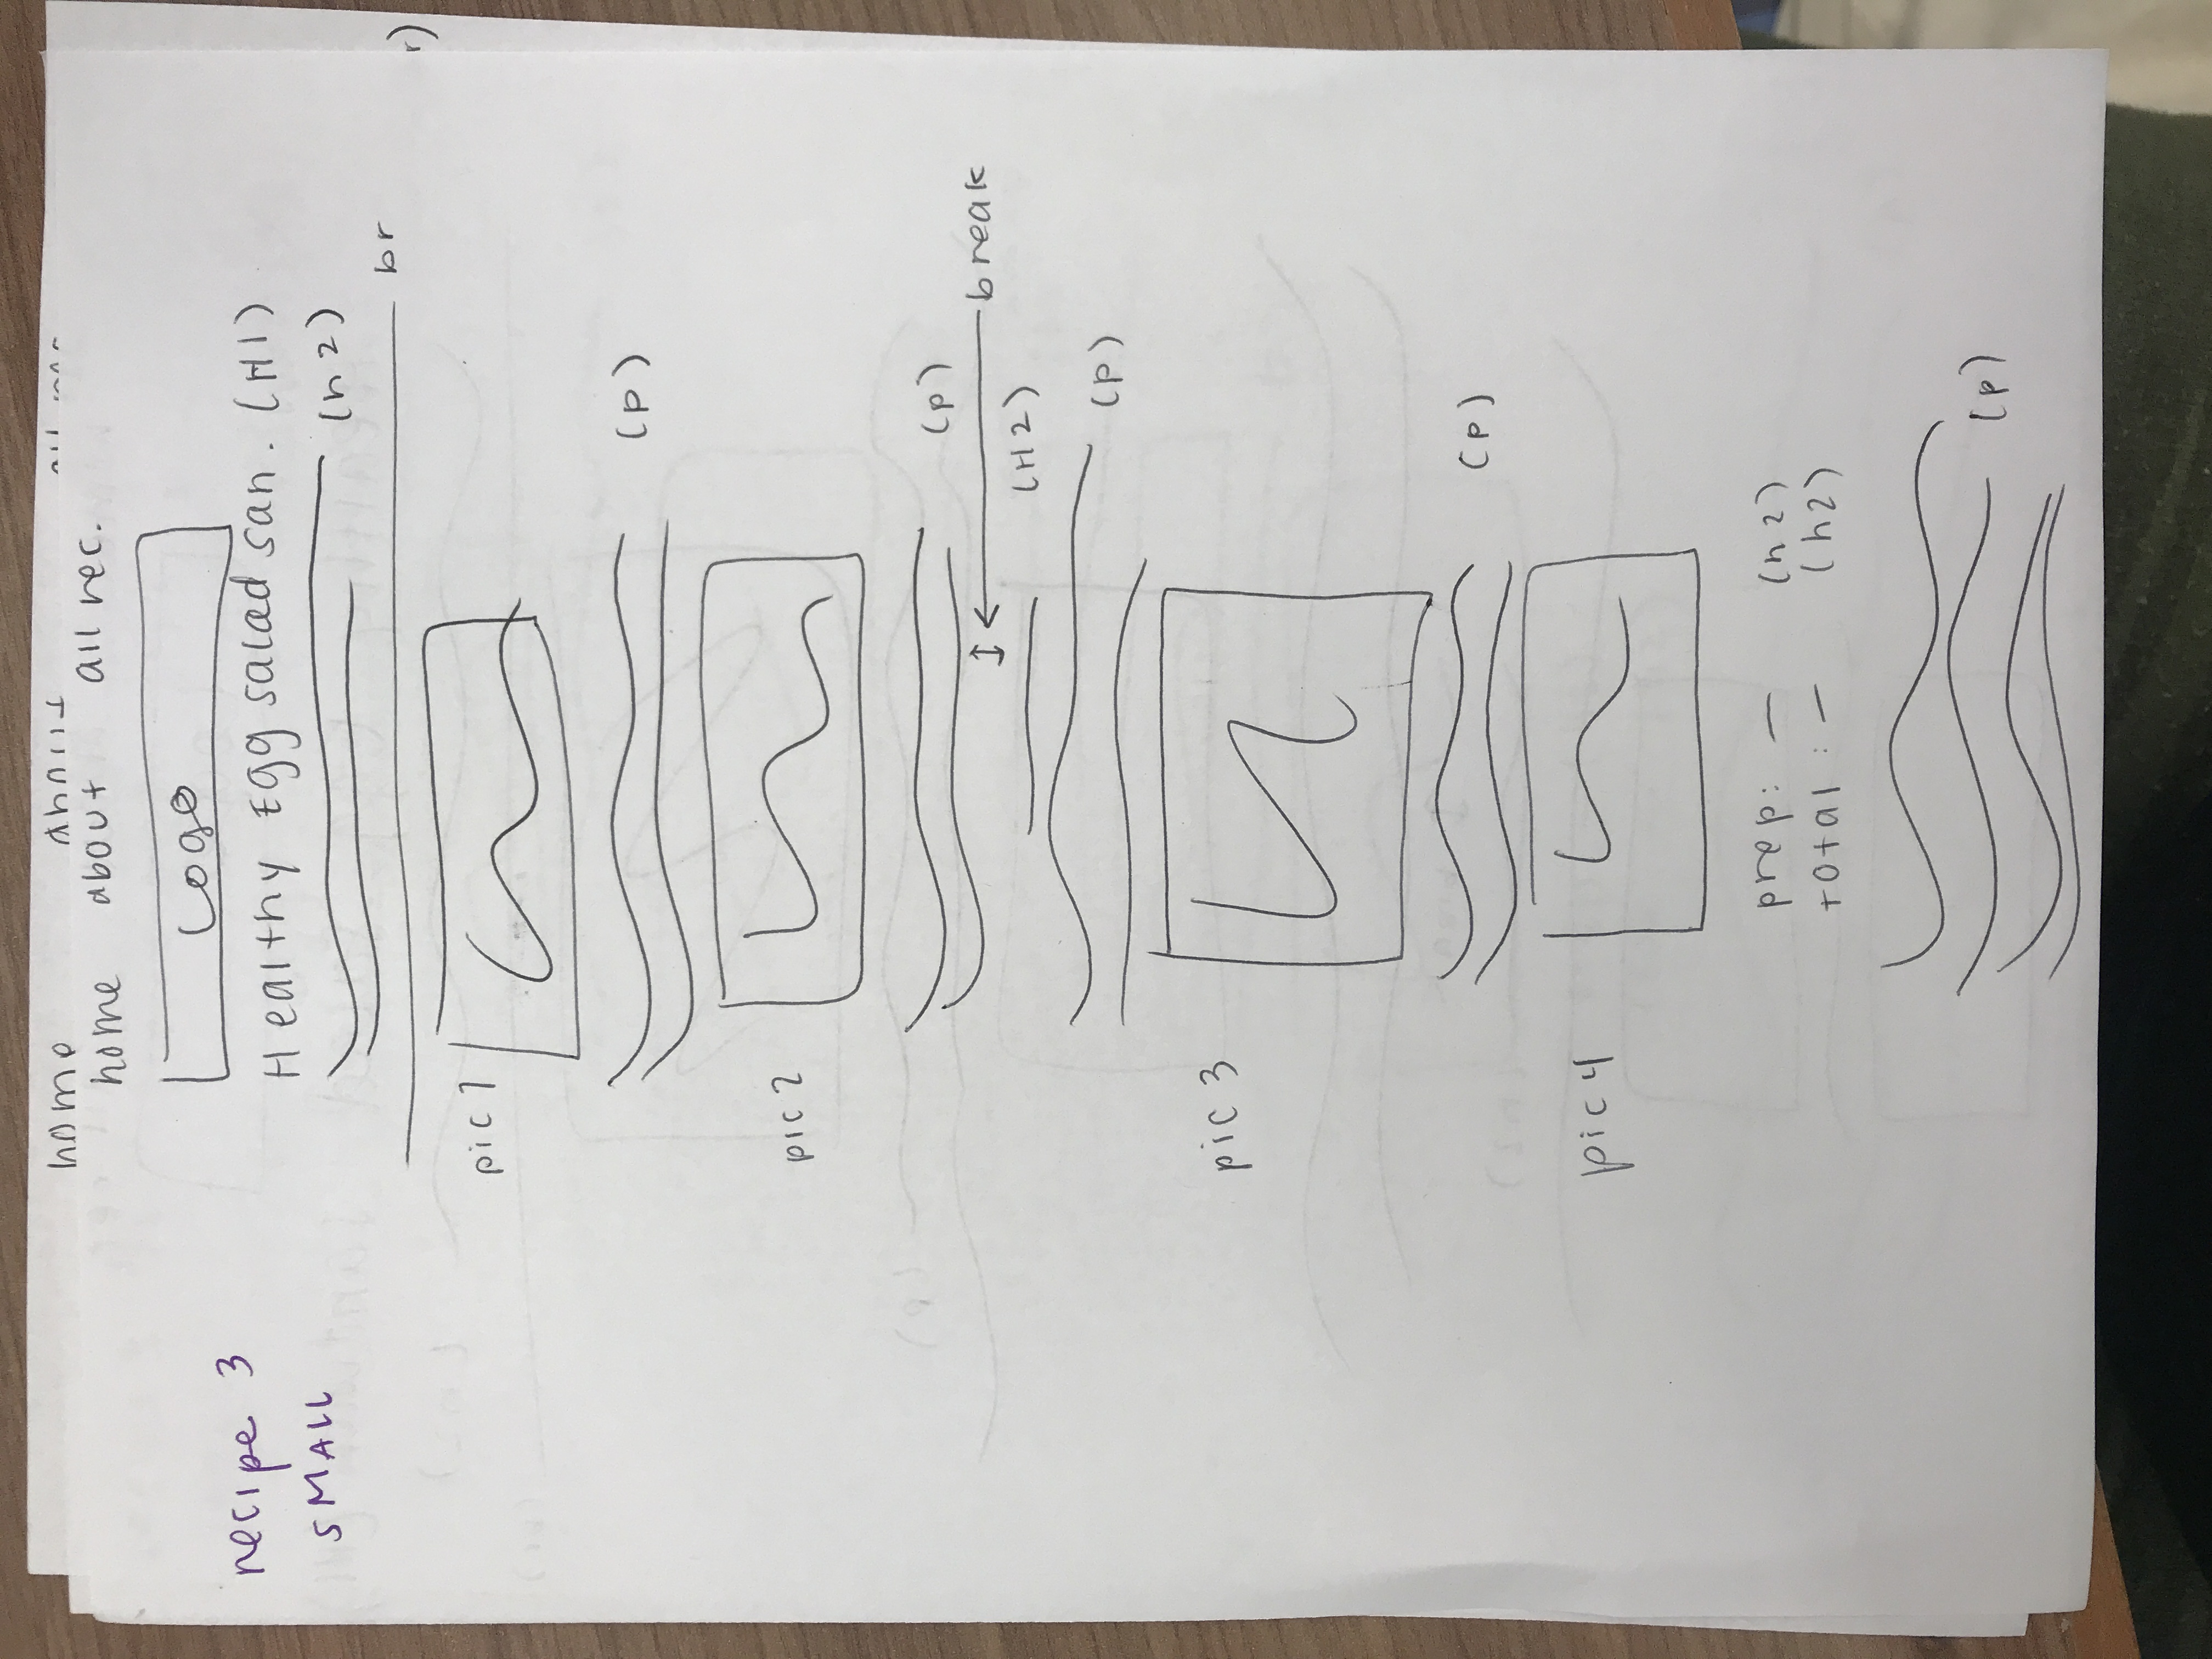 home about
home about all rec.
Logo
recipe 3
SMALL
Healthy Egg salad san. (H1)
(h2)
br
pic 1
(p)
pic 2
(p)
break
(H2)
(p)
pic 3
(p)
pic 4
prep: — (h2)
total: — (h2)
(p)